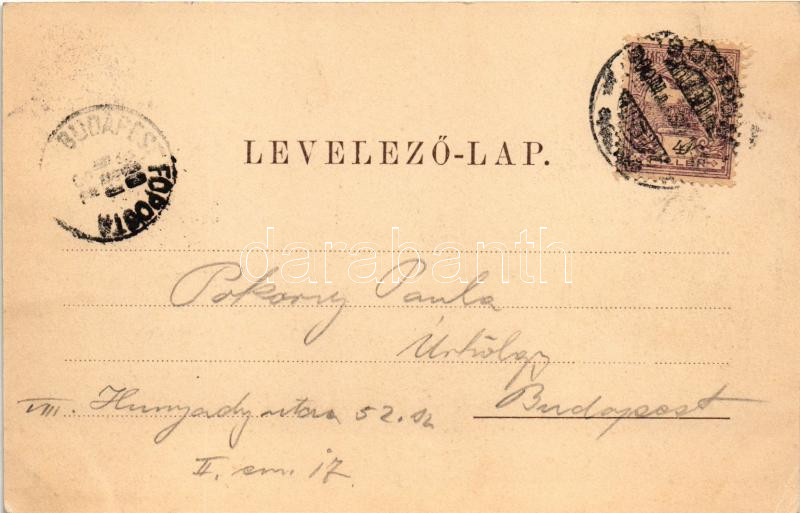 LEVELEZŐ-LAP.
BUDAPEST
FŐPOSTA
darabanth
Pokorny Paula
Úrhölgy
VIII. Hunyady utca 52. sz
Budapest
II. em. 17.